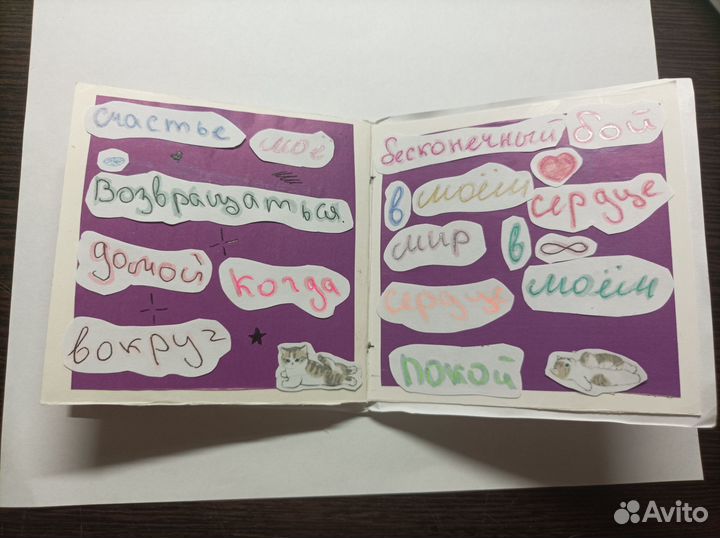 счастье моё
возвращаться.
домой когда
вокруг
бесконечный бой
в моём сердце
мир в
сердце моём
покой
Avito